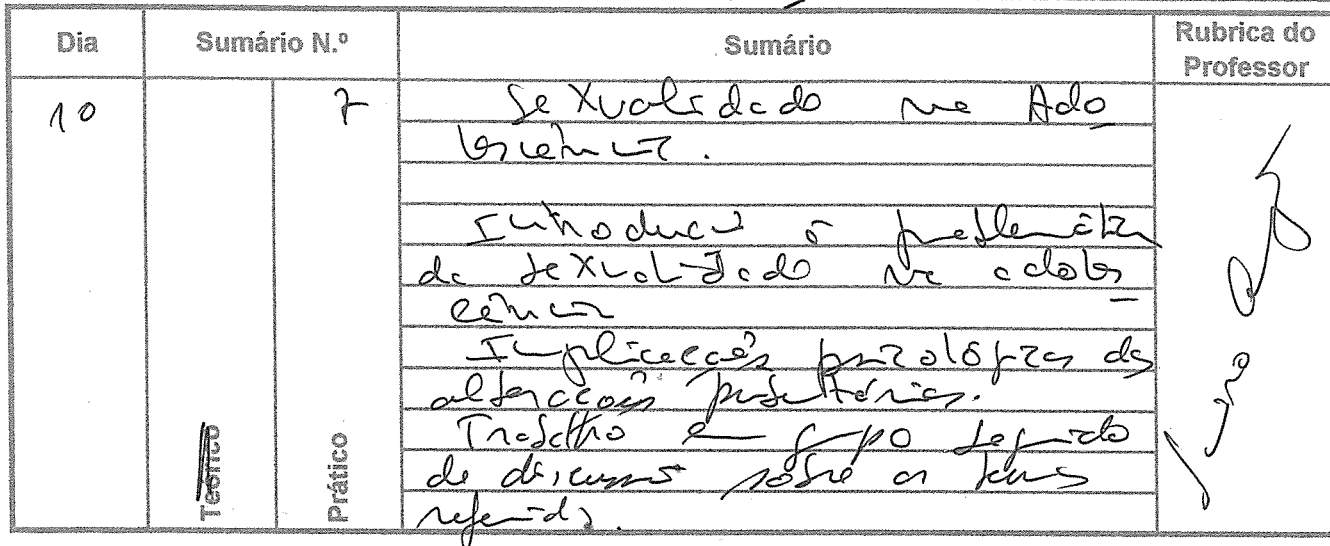 Dia Sumário N.º Sumário Rubrica do Professor
10 7 Sexualidade na Ado
lescência.
Introdução à problemática
da sexualidade na adoles
cência
Implicações psicológicas das
alterações pubertárias.
Trabalho em grupo seguido
de discussão sobre os temas
referidos.
Teórico Prático